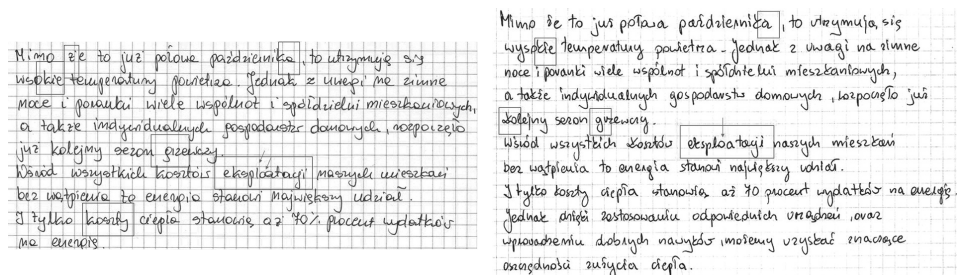 Mimo że to już połowa października, to utrzymują się
wsokie temperatury powietrza. Jednak z uwagi na zimne
noce i poranki wiele wspólnot i spółdzielni mieszkaniowych,
a także indywidualnych gospodarstw domowych, rozpoczęło
już kolejny sezon grzewczy.
Wśród wszystkich kosztów eksploatacji naszych mieszkań
bez wątpienia to energia stanowi największy udział.
I tylko koszty ciepła stanowią aż 70% procent wydatków
na energię.
Mimo że to już połowa października, to utrzymują się
wysokie temperatury powietrza. Jednak z uwagi na zimne
noce i poranki wiele wspólnot i spółdzielni mieszkaniowych,
a także indywidualnych gospodarstw domowych, rozpoczęło już
kolejny sezon grzewczy.
Wśród wszystkich kosztów eksploatacji naszych mieszkań
bez wątpienia to energia stanowi największy udział.
I tylko koszty ciepła stanowią aż 70 procent wydatków na energię.
Jednak dzięki zastosowaniu odpowiednich urządzeń, oraz
wprowadzeniu dobrych nawyków, możemy uzyskać znaczące
oszczędności zużycia ciepła.